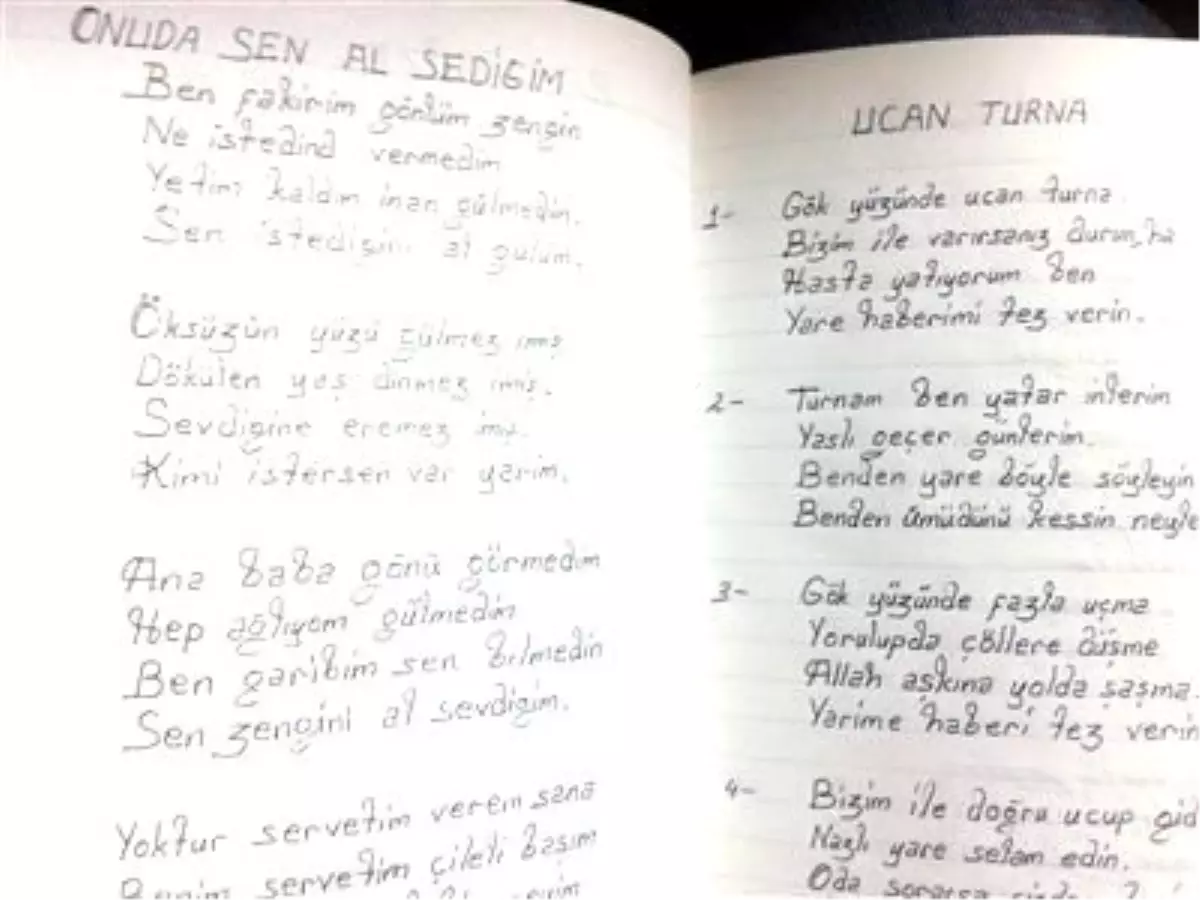 ONUDA SEN AL SEDİGİM
Ben fakirim gönlüm zengin
Ne istedind vermedim
Yetim kaldım inan gülmedin.
Sen istedigini al gulum.
Öksüzün yüzü gülmez imiş
Dökülen yaş dinmez imiş.
Sevdigine eremez imiş.
Kimi istersen var yarim.
Ana baba gönü görmedim
Hep ağlıyom gülmedin
Ben garibim sen bilmedin
Sen zengini al sevdigim.
Yoktur servetim verem sana
servetim çileli başım
UCAN TURNA
1- Gök yüzünde ucan turna
Bizim ile varırsanız durun ha
Hasta yatıyorum ben
Yare haberimi tez verin.
2- Turnam ben yatar inlerim
Yaslı geçer günlerim.
Benden yare böyle söyleyin
Benden ümüdünü kessin neyle
3- Gök yüzünde fazla uçma
Yorulupda çöllere düşme
Allah aşkına yolda şaşma.
Yarime haberi tez verin
4- Bizim ile doğru ucup gid
Nazlı yare selam edin.
Oda sorarsa